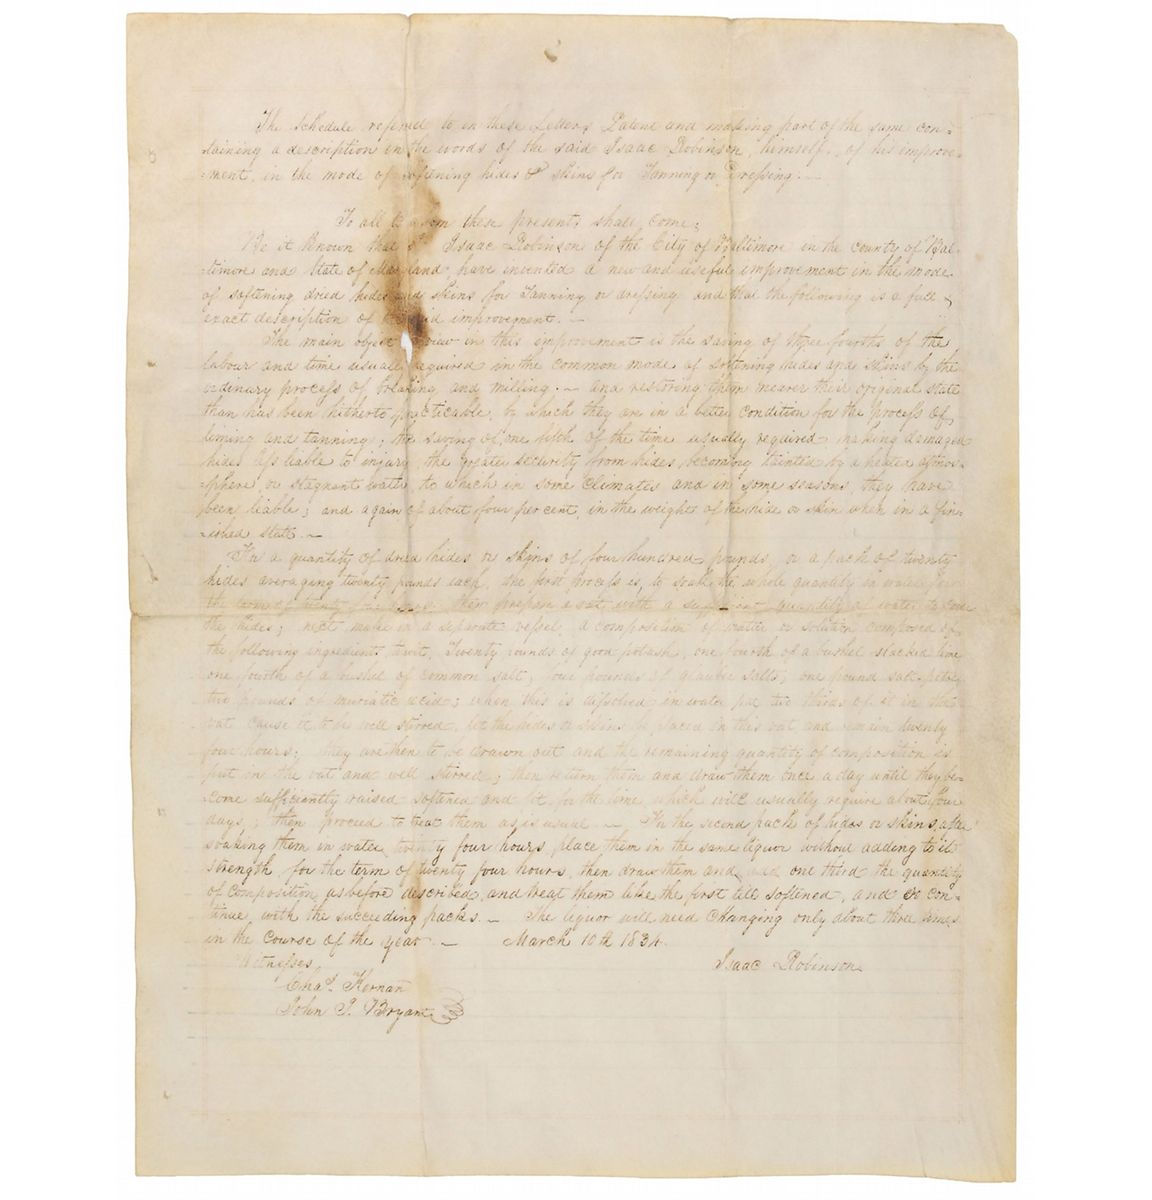 The Schedule referred to in these Letters Patent and making part of the same con-
taining a description in the words of the said Isaac Robinson, himself, of his improve-
ment, in the mode of softening hides & skins for Tanning or Dressing. —
To all to whom these presents shall come;
Be it Known that I Isaac Robinson of the City of Baltimore in the county of Bal-
timore and State of Maryland, have invented a new and useful improvement in the mode
of softening dried hides and skins for Tanning or dressing and that the following is a full &
exact description of the said improvement. —
The main object view in this improvement is the saving of three fourths of the
labour and time usually required in the common mode of softening hides and skins by the
ordinary process of breaking and milling. — and restoring them nearer their original state
than has been hitherto practicable, by which they are in a better condition for the process of
liming and tanning; the saving of one fifth of the time usually required making damaged
hides less liable to injury, the greater security from hides becoming tainted by a heated atmos-
phere, or stagnant water to which in some Climates and in some seasons, they have
been liable; and again of about four per cent, in the weight of the hide or skin when in a fin-
ished state. —
In a quantity of dried hides or skins of four hundred pounds, or a pack of twenty
hides averaging twenty pounds each, the first process is, to soak the whole quantity in water for
the term of twenty four hours: then prepare a vat with a sufficient quantity of water to cover
the hides; next make in a separate vessel, a composition of matter or solution composed of
the following ingredients towit, Twenty pounds of good potash, one fourth of a bushel slacked lime
one fourth of a bushel of common salt, four pounds of glauber salts; one pound salt-petre
two pounds of muriatic acid; when this is dissolved in water put two thirds of it in the
vat cause it to be well stirred, let the hides or skins be placed in this vat and remain twenty
four hours; they are then to be drawn out and the remaining quantity of composition is
put in the vat and well stirred; then return them and draw them once a day until they be-
come sufficiently raised softened and fit for the lime, which will usually require about four
days; then proceed to treat them as is usual — In the second pack of hides or skins, after
soaking them in water twenty four hours, place them in the same liquor without adding to its
strength, for the term of twenty four hours, then draw them and add one third the quantity
of composition, as before described, and treat them like the first till softened, and so con-
tinue, with the succeeding packs. — The liquor will need changing only about three times
in the course of the year. — March 10th 1834.
Witnesses, Isaac Robinson
Chas. Kernan
John P. Bryant